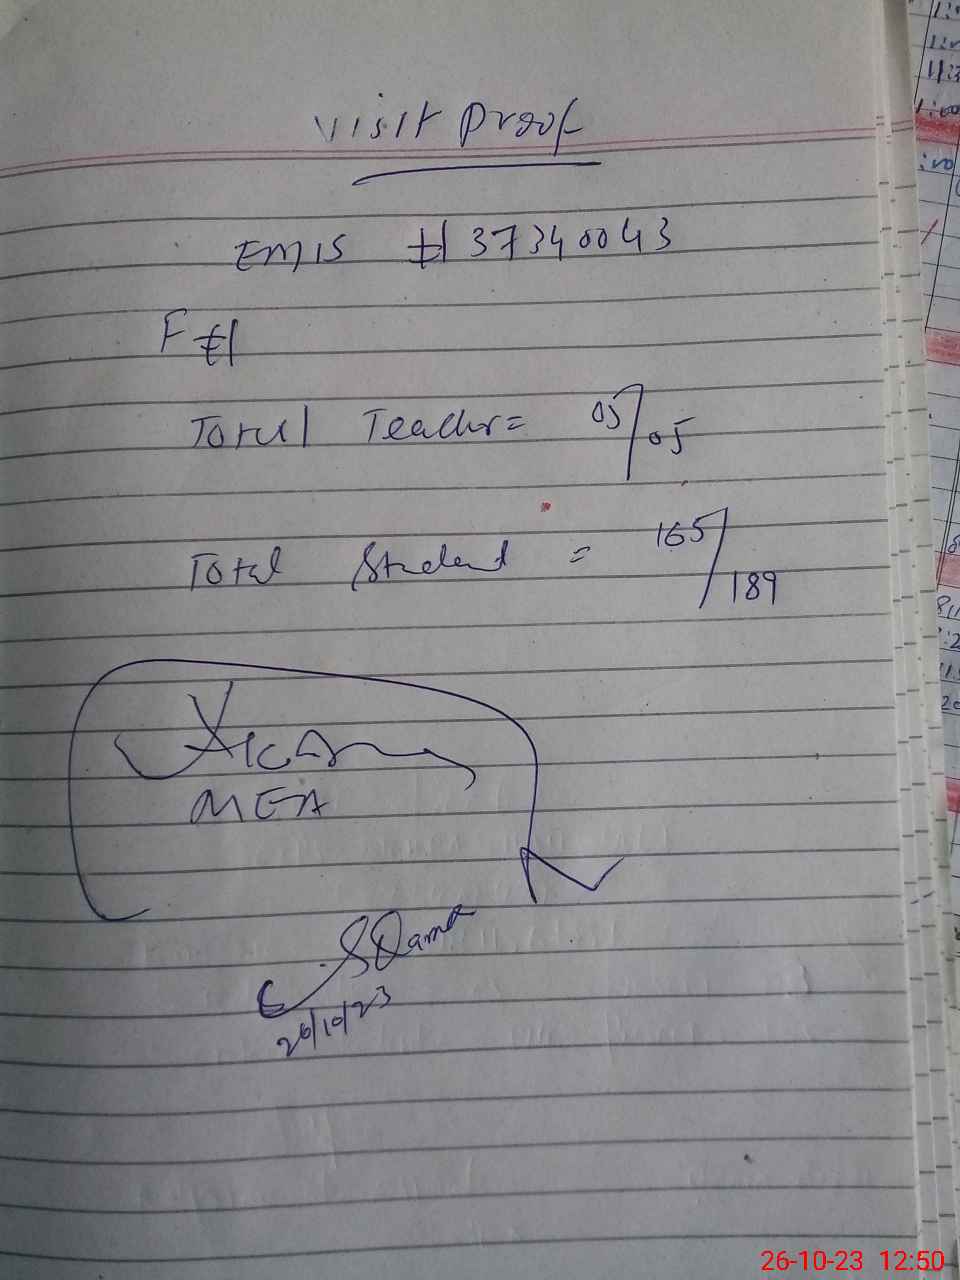 Visit Proof
EMIS # 37340043
F #
Total Teacher = 05/05
Total Student = 165/189
MEA
SQamar
26/10/23
26-10-23 12:50